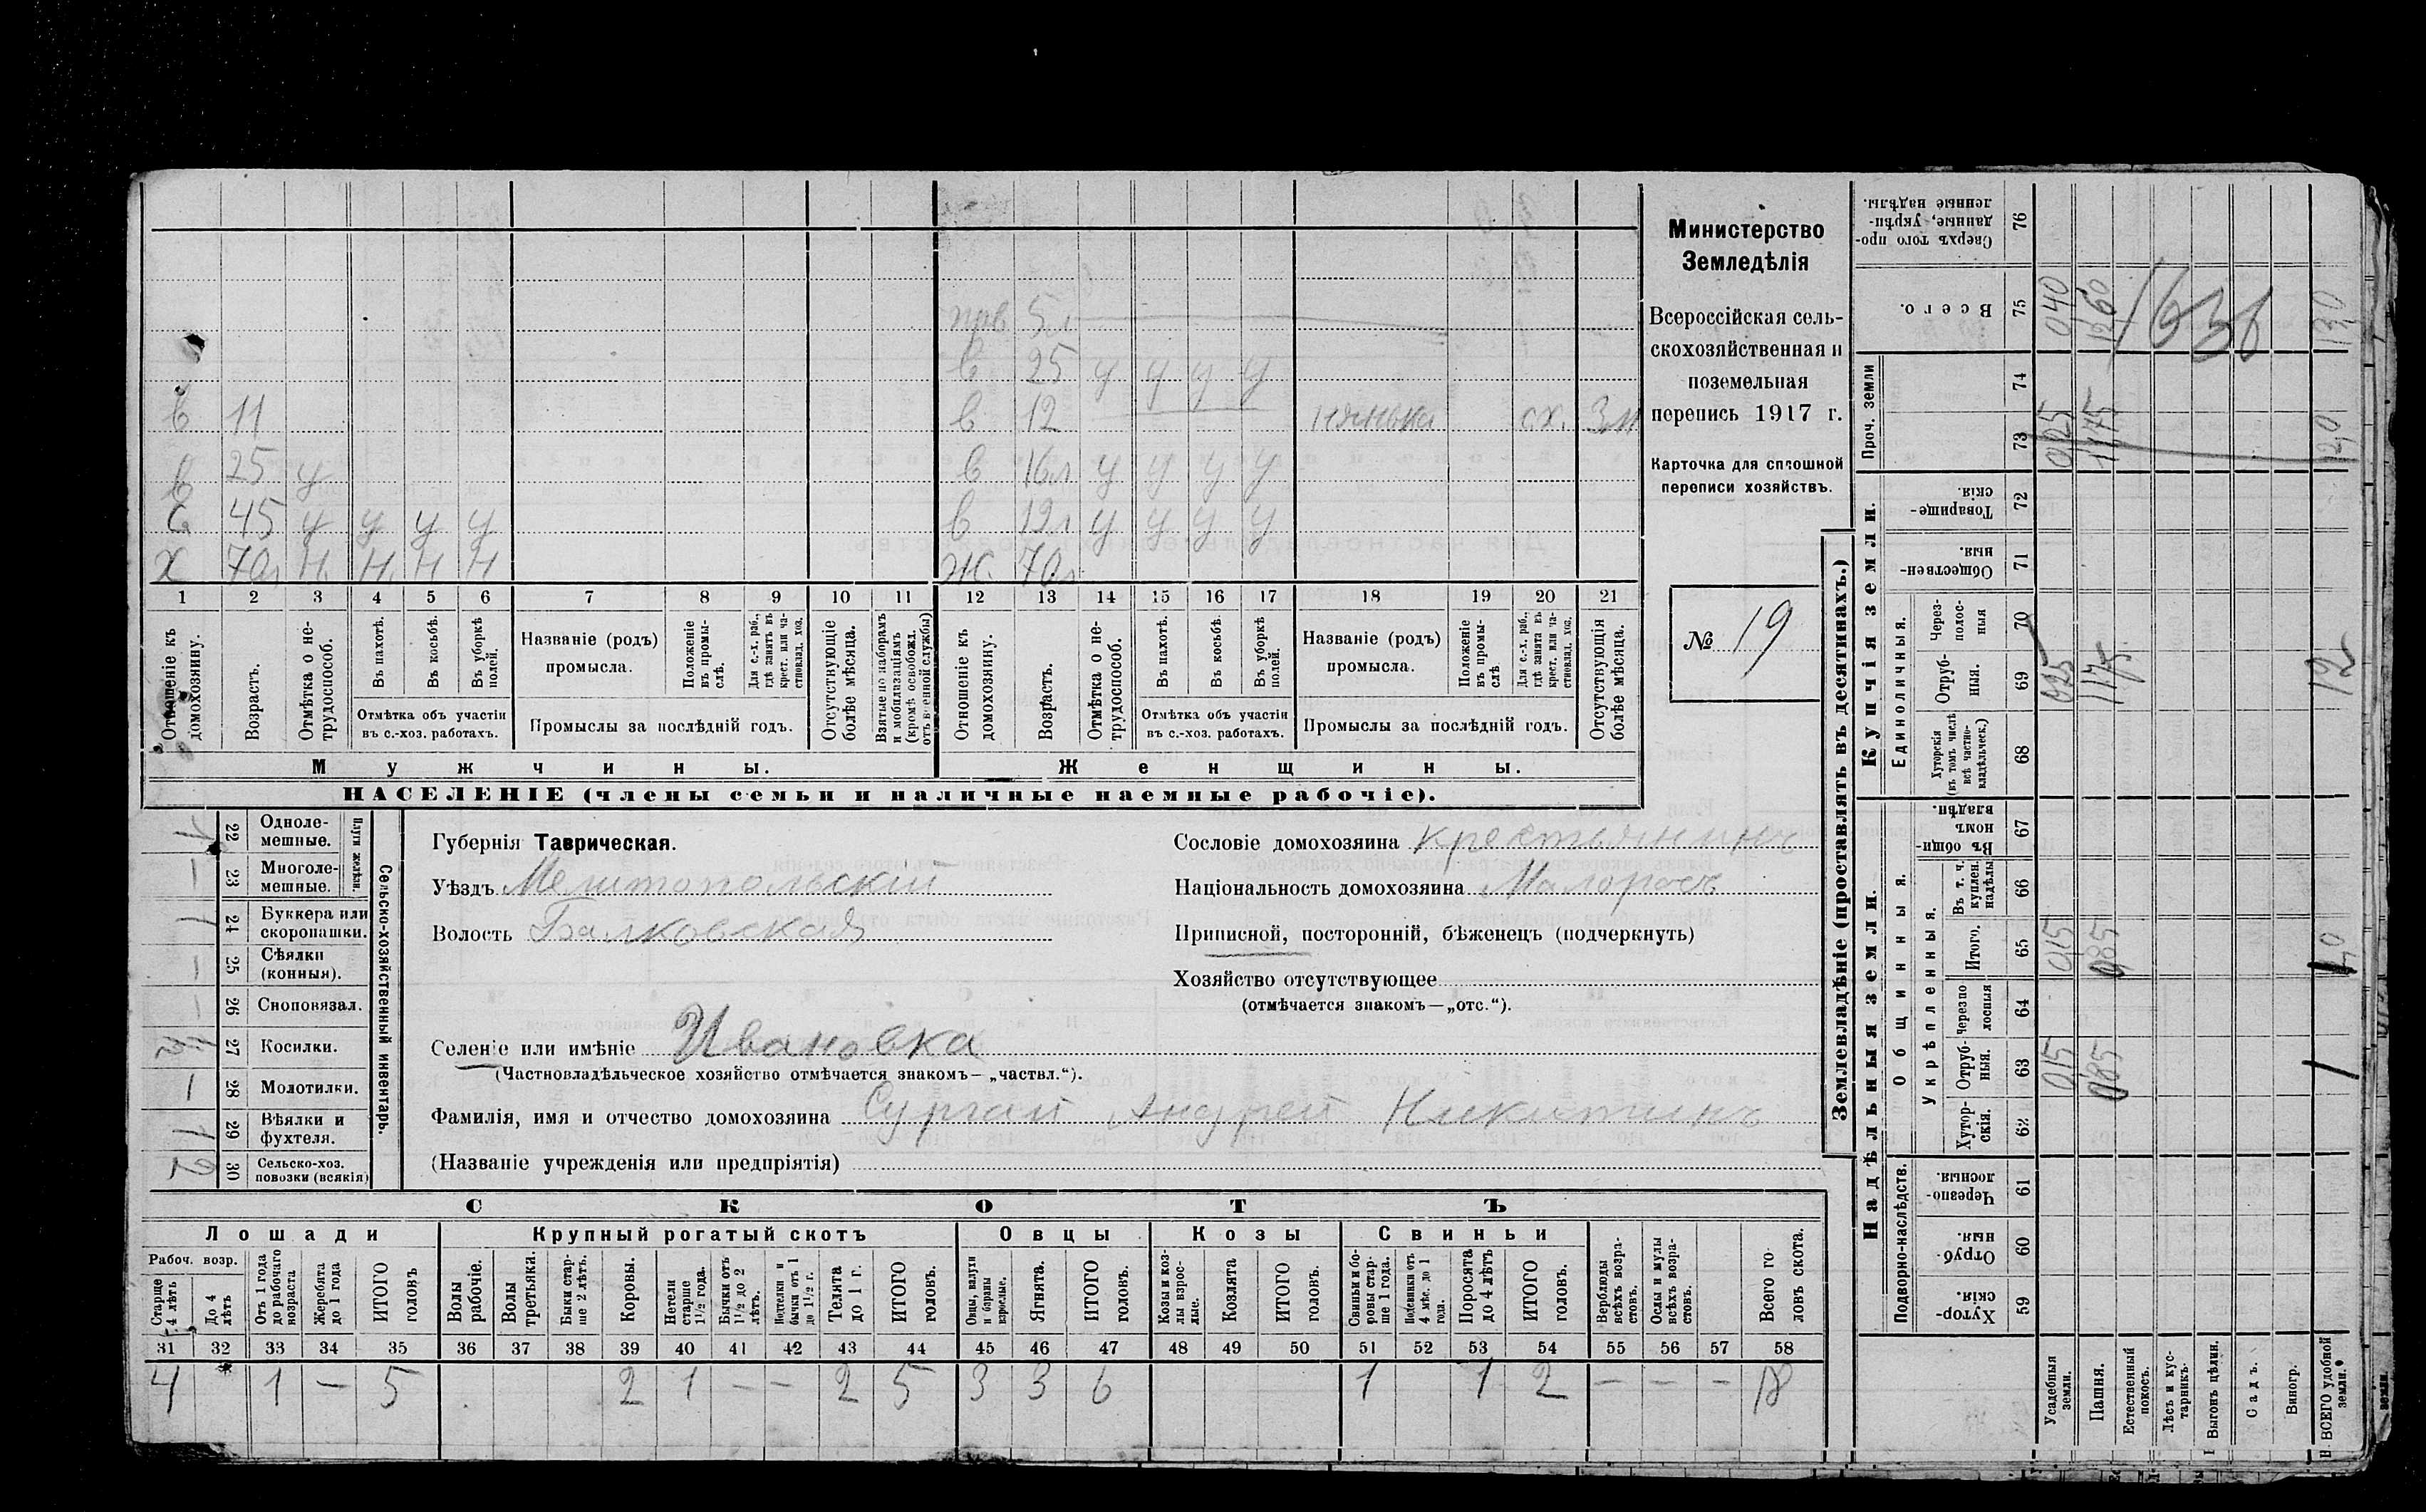 Министерство
Земледѣлія
Всероссійская сель-
скохозяйственная и
поземельная
перепись 1917 г.
Карточка для сплошной
переписи хозяйствъ.
№ 19
прв 5л
в 25 у у у у
в 11
в 12 нянька сх. 3м
в 25 у
в 16л у у у у
с 45 у у у у
в 12л у у у у
х 70л Н. Н. Н Н
ж. 70л
1 2 3 4 5 6 7 8 9 10 11 12 13 14 15 16 17 18 19 20 21
Отношеніе къ домохозяину.
Возрастъ.
Отмѣтка о не-трудоспособ.
Въ пахотѣ.
Въ косьбѣ.
Въ уборкѣ полей.
Отмѣтка объ участіи
въ с.-хоз. работахъ.
Названіе (родъ)
промысла.
Положеніе въ промы-слѣ.
Для с.-х. раб., гдѣ занятъ въ крест. или ча-стновлад. хоз.
Промыслы за послѣдній годъ.
Отсутствующіе болѣе мѣсяца.
Взятые по наборамъ и мобилизаціямъ (кромѣ освобожд. отъ военной службы)
Отношеніе къ домохозяину.
Возрастъ.
Отмѣтка о не-трудоспособ.
Въ пахотѣ.
Въ косьбѣ.
Въ уборкѣ полей.
Отмѣтка объ участіи
въ с.-хоз. работахъ.
Названіе (родъ)
промысла.
Положеніе въ промы-слѣ
Для с.-х. раб., гдѣ занята въ крест. или ча-стновлад. хоз.
Промыслы за послѣдній годъ.
Отсутствующія болѣе мѣсяца.
Мужчины.
Женщины.
НАСЕЛЕНІЕ (члены семьи и наличные наемные рабочіе).
Сельско-хозяйственный инвентарь.
Плуги желѣзн.
22 Одноле-мешные. 1
23 Многоле-мешные. —
24 Буккера или скоропашки. 1
25 Сѣялки (конныя). —
26 Сноповязал. —
27 Косилки.
28 Молотилки. 1
29 Вѣялки и фухтеля. 1
30 Сельско-хоз. повозки (всякія) 2
Губернія Таврическая.
Уѣздъ Мелитопольскій
Волость Балковская
Сословіе домохозяина крестьянинъ
Національность домохозяина Малоросъ
Приписной, посторонній, бѣженецъ (подчеркнуть)
Хозяйство отсутствующее
(отмѣчается знакомъ—„отс.“).
Селеніе или имѣніе Ивановка
(Частновладѣльческое хозяйство отмѣчается знакомъ—„частвл.“).
Фамилія, имя и отчество домохозяина Сургай Андрей Никитинъ
(Названіе учрежденія или предпріятія)
СКОТЪ
Лошади
Крупный рогатый скотъ
Овцы
Козы
Свиньи
Рабоч. возр.
Старше 4 лѣтъ
До 4 лѣтъ
Отъ 1 года до рабочаго возраста
Жеребята до 1 года
ИТОГО головъ
Волы рабочіе.
Волы третьяка.
Быки стар-ше 2 лѣтъ.
Коровы.
Нетели старше 1½ года.
Бычки отъ 1½ до 2 лѣтъ.
Подтелки и бычки отъ 1 до 1½ г.
Телята до 1 г.
ИТОГО головъ.
Овцы, валухи и бараны взрослые.
Ягнята.
ИТОГО головъ.
Козы и коз-лы взрос-лые.
Козлята
ИТОГО головъ.
Свиньи и бо-ровы стар-ше 1 года.
Подсвинки отъ 4 мѣс. до 1 года.
Поросята до 4 лѣтъ
ИТОГО головъ.
Верблюды всѣхъ возра-стовъ.
Ослы и мулы всѣхъ возра-стовъ.
Всего го-ловъ скота.
31 32 33 34 35 36 37 38 39 40 41 42 43 44 45 46 47 48 49 50 51 52 53 54 55 56 57 58
4 1 — 5 2 1 — — 2 5 3 3 6 1 1 2 — — — 18
Землевладѣніе (проставлять въ десятинахъ.)
Надѣльныя земли.
Купчія земли.
Проч. земли
Подворно-наслѣдств.
Общинныя.
Укрѣпленныя.
Единоличныя.
Хутор-скія. 59
Отруб-ныя. 60
Черезпо-лосныя. 61
Хутор-скія. 62
Отруб-ныя. 63 015 085 1
Черезпо лосныя 64
Итого. 65 015 085 1,0
Въ т. ч. куплен. надѣлы 66
Въ общи-номъ владѣн. 67
Хуторскія (въ томъ числѣ всѣ частно-владѣльческ.) 68
Отруб-ныя. 69 025 1175 12
Через-полос-ныя 70
Обществен-ныя. 71
Товарище-скія. 72
73 025 1175 12,0
74
Всего. 75 040 1260 1636 130
Сверхъ того про-данные, укрѣп-ленные надѣлы. 76
Усадебныя земли.
Пашня.
Естественный покосъ.
Лѣсъ и кус-тарникъ.
Выгонъ цѣлин.
Садъ.
Виногр.
ВСЕГО удобной земли.